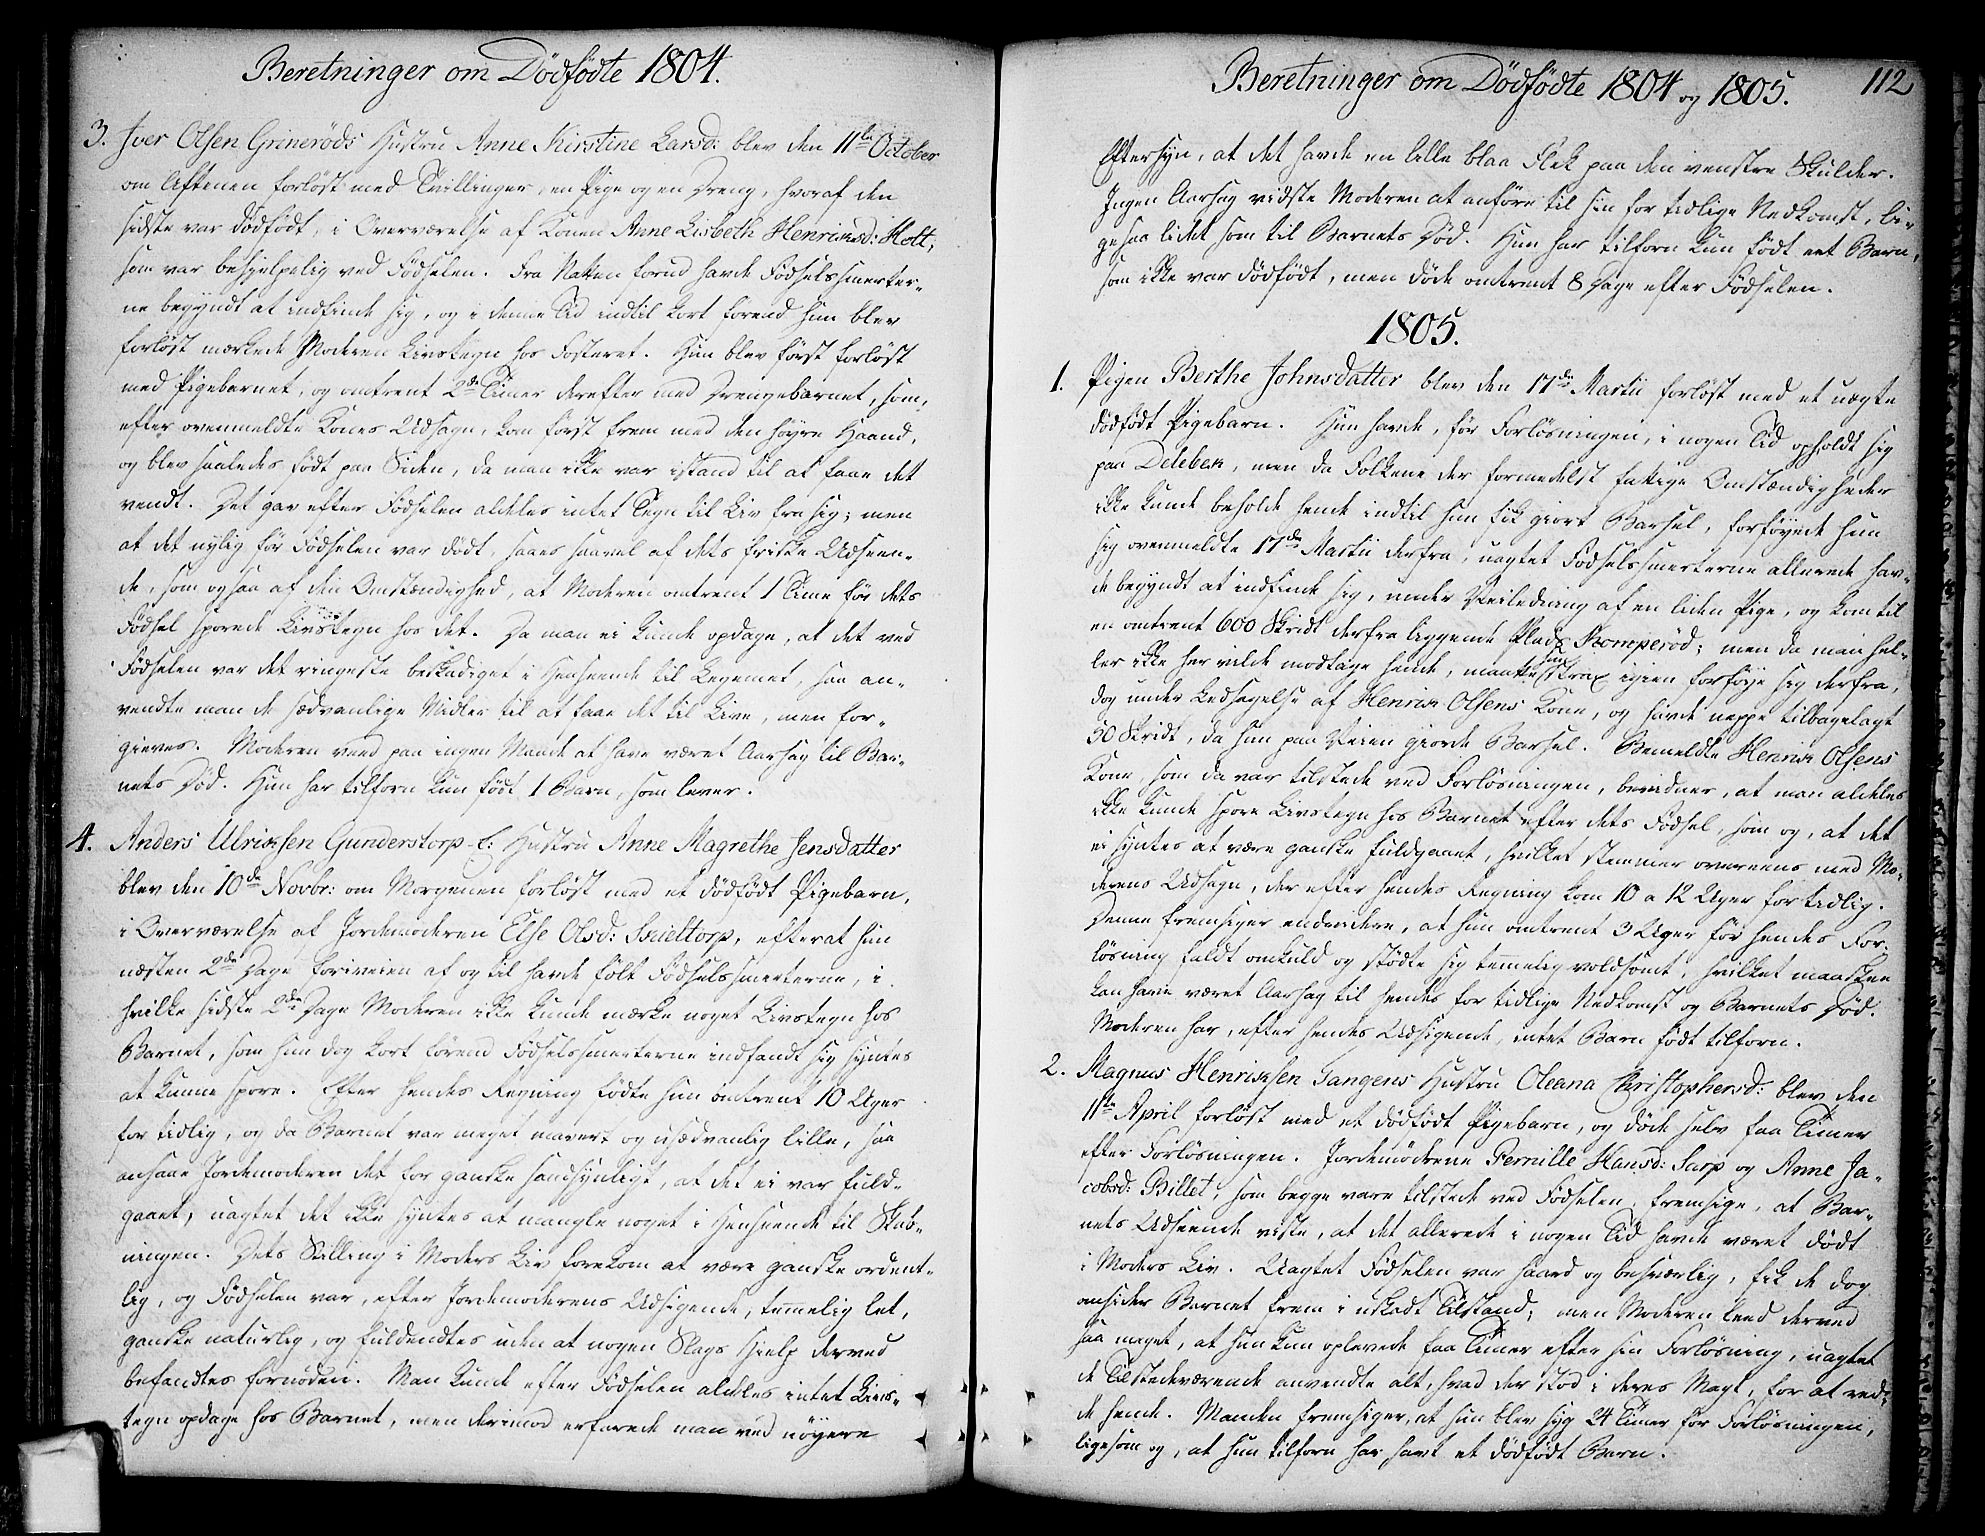 Beretninger om Dödfödte 1804.
3. Iver Olsen Grineröds Hustru Anne Kirstine Larsd: blev den 11te October
om Aftenen forlöst med Tvillinger, en Pige og en Dreng, hvoraf den
sidste var dödfödt, i Overværelse af Konen Anne Lisbeth Henriksd: Holt,
som var behjelpelig ved Födselen. Fra Natten forud havde Födselssmerter-
ne begyndt at indfinde sig, og i denne Tid indtil kort forend hun blev
forlöst mærkede Moderen Livstegn hos Fosteret. Hun blev först forlöst
med Pigebarnet, og omtrent 2de Timer derefter med Drengebarnet, som,
efter ovenmeldte Kones Udsagn, kom först frem med den höyre Haand,
og blev saaledes födt paa Siden, da man ikke var istand til at faae det
vendt. Det gav efter Födselen aldeles intet Tegn til Liv fra sig; men
at det nylig för Födselen var dödt, saaes saavel af dets friske Udseen-
de, som ogsaa af den Omstændighed, at Moderen omtrent 1 Time för dets
Födsel sporede Livstegn hos det. Da man ei kunde opdage, at det ved
Födselen var det ringeste beskadiget i Henseende til Legemet, saa an-
vendte man de sædvanlige Midler til at faae det til Live, men for-
gieves. Moderen veed paa ingen Maade at have været Aarsag til Bar-
nets Död. Hun har tilforn kun födt 1 Barn, som lever.
4. Anders Ulriksen Gunderstorp-E: Hustru Anne Magrethe Jensdatter
blev den 10de Novbr: om Morgenen forlöst med et dödfödt Pigebarn,
i Overværelse af Jordemoderen Else Olsd: Skieltorp, efterat hun
næsten 2de Dage foriveien af og til havde fölt Födselssmerterne, i
hvilke sidste 2de Dage Moderen ikke kunde mærke noget Livstegn hos
Barnet, som hun dog kort förend Födselssmerterne indfandt sig syntes
at kunne spore. Efter hendes Regning födte hun omtrent 10 Uger
for tidlig, og da Barnet var meget mavert og usædvanlig lille, saa
ansaae Jordemoderen det for ganske sandsynligt, at det ei var fuld-
gaaet, uagtet det ikke syntes at mangle noget i Henseende til Skab-
ningen. Dets Stilling i Moders Liv forekom at være ganske ordent-
lig, og Födselen var, efter Jordemoderens Udsigende, temelig let,
ganske naturlig, og fuldendtes uden at nogen Slags Hjelp derved
befandtes fornöden. Man kunde efter Födselen aldeles intet Livs-
tegn opdage hos Barnet, men derimod erfarede man ved nöyere
Beretninger om Dödfödte 1804 og 1805.
112
Eftersyn, at det havde en lille blaa Flek paa den venstre Skulder.
Ingen Aarsag vidste Moderen at anföre til sin for tidlige Nedkomst, li-
gesaa lidet som til Barnets Död. Hun har tilforn kun födt eet Barn,
som ikke var dödfödt, men döde omtrent 8 Dage efter Födselen.
1805.
1. Pigen Berthe Johnsdatter blev den 17de Martii forlöst med et uægte
dödfödt Pigebarn. Hun havde, för Forlösningen, i nogen Tid opholdt sig
paa Delebek, men da Folkene der formedelst fattige Omstændigheder
ikke kunde beholde hende indtil hun fik giort Barsel, forföyede hun
sig ovenmeldte 17de Martii derfra, uagtet Födselssmerterne allerede hav-
de begyndt at indfinde sig, under Veiledning af en liden Pige, og kom til
en omtrent 600 Skridt derfra liggende Plads Komperöd; men da man hel-
ler ikke her vilde modtage hende, maatte hun strax igien forföye sig derfra,
dog under Ledsagelse af Henrik Olsens Kone, og havde neppe tilbagelagt
50 Skridt, da hun paa Veien giorde Barsel. Bemeldte Henrik Olsens
Kone, som da var tilstede ved Forlösningen, bevidner, at man aldeles
ikke kunde spore Livstegn hos Barnet efter dets Födsel, som og, at det
ei syntes at være ganske fuldgaaet, hvilket stemmer overeens med Mo-
derens Udsagn, der efter hendes Regning kom 10 a 12 Uger for tidlig.
Denne fremsiger endvidere, at hun omtrent 3 Uger för hendes For-
lösning faldt omkuld og stödte sig temelig voldsomt, hvilket maaskee
kan have været Aarsag til hendes for tidlige Nedkomst og Barnets Död.
Moderen har, efter hendes Udsigende, intet Barn födt tilforn.
2. Magnus Henriksen Tangens Hustru Oleana Christophersd: blev den
11te April forlöst med et dödfödt Pigebarn, og döde selv faa Timer
efter Forlösningen. Jordemödrene Pernille Hansd: Sarp og Anne Ja-
cobsd: Billet, som begge vare tilstede ved Födselen, fremsige, at Bar-
nets Udseende viste, at det allerede i nogen Tid havde været dödt
i Moders Liv. Uagtet Födselen var haard og besværlig, fik de dog
omsider Barnet frem i uskadt Tilstand; men Moderen leed derved
saa meget, at hun kun oplevede faa Timer efter sin Forlösning, uagtet
de Tilstedeværende anvendte alt, hvad der stod i deres Magt, for at red-
de hende. Manden fremsiger, at hun blev syg 24 Timer för Forlösningen,
ligesom og, at hun tilforn har havt et dödfödt Barn.